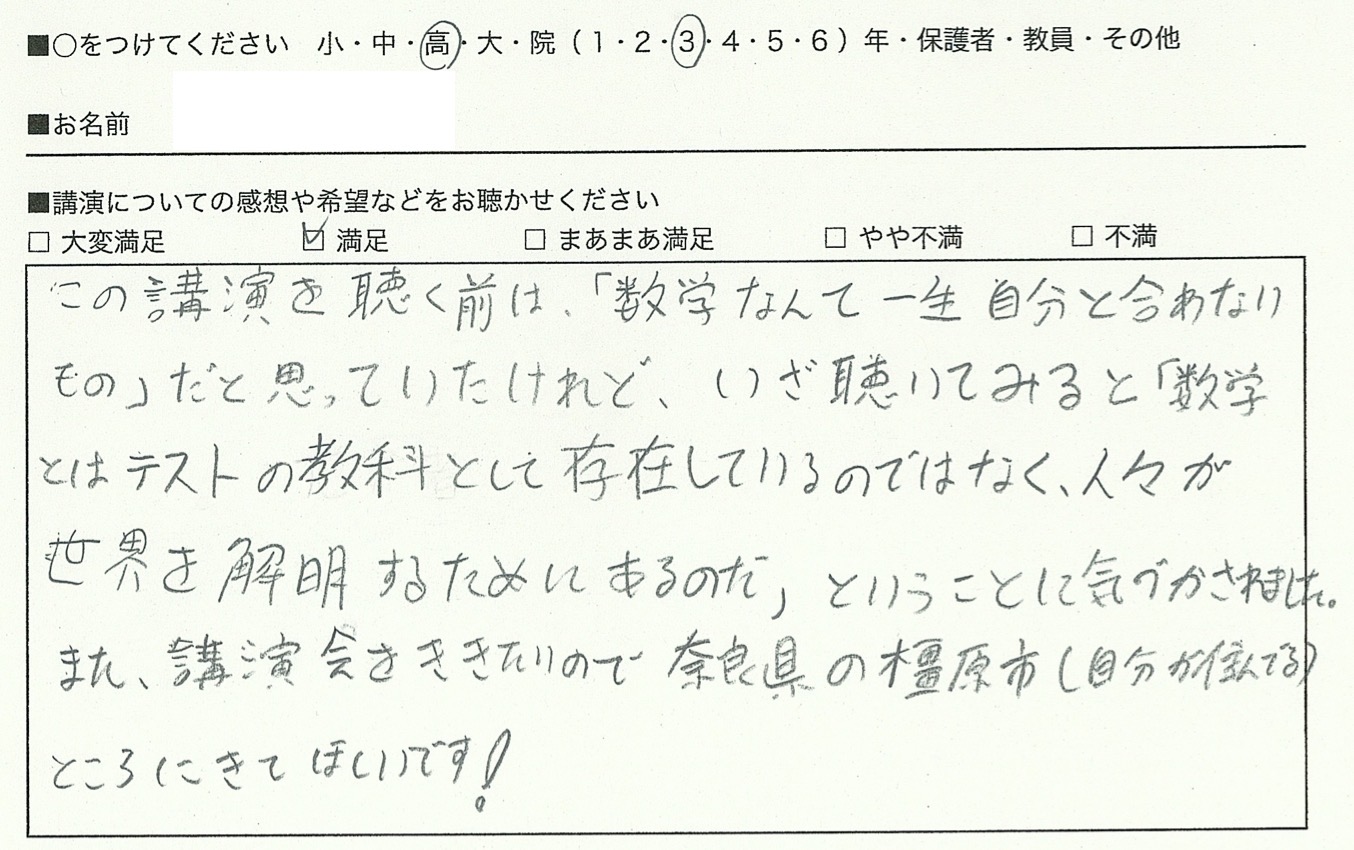 ■○をつけてください 小・中・高・大・院（1・2・3・4・5・6）年・保護者・教員・その他
■お名前
■講演についての感想や希望などをお聴かせください
□ 大変満足 ☑ 満足 □ まあまあ満足 □ やや不満 □ 不満
この講演を聴く前は、「数学なんて一生自分と合わない
もの」だと思っていたけれど、いざ聴いてみると「数学
とはテストの教科として存在しているのではなく、人々が
世界を解明するためにあるのだ」ということに気づかされました。
また、講演会をききたいので奈良県の橿原市（自分が住んでる）
ところにきてほしいです!